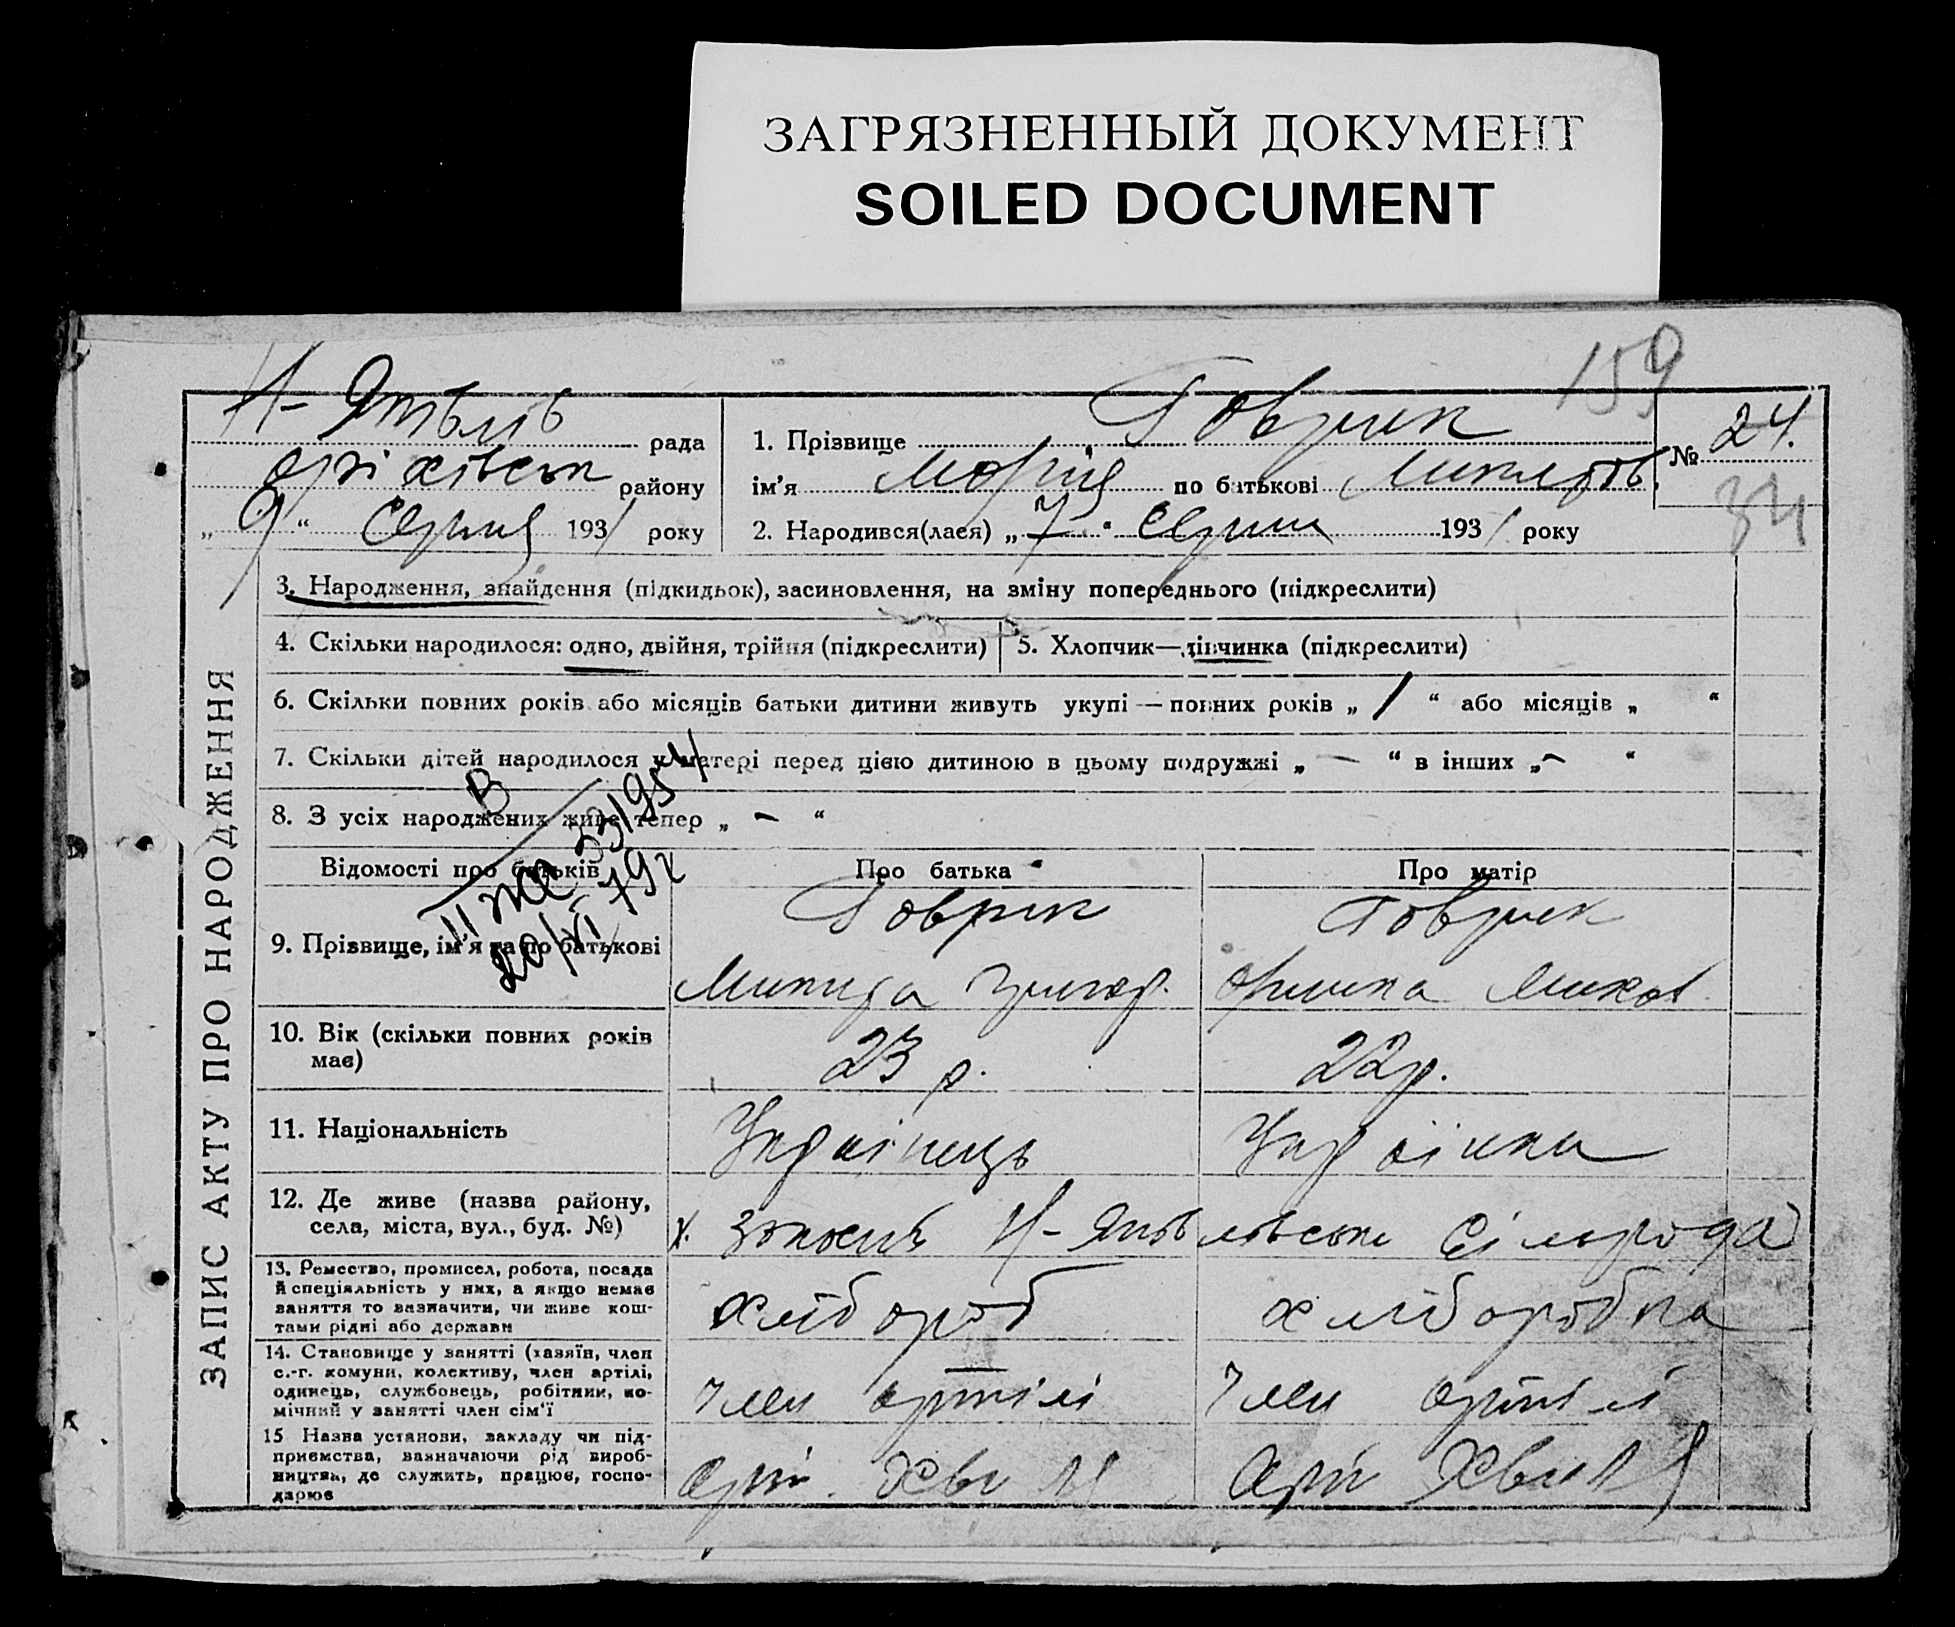 ЗАГРЯЗНЕННЫЙ ДОКУМЕНТ
SOILED DOCUMENT
159
рада
району
„ 9 “ Серпня 1931 року
1. Прізвище Говрик
ім'я Марія по батькові
2. Народився(лася) „ 7 “ Серпня 1931 року
№ 24.
34
ЗАПИС АКТУ ПРО НАРОДЖЕННЯ
3. Народження, знайдення (підкидьок), засиновлення, на зміну попереднього (підкреслити)
4. Скільки народилося: одно, двійня, трійня (підкреслити)
5. Хлопчик—дівчинка (підкреслити)
6. Скільки повних років або місяців батьки дитини живуть укупі — повних років „ 1 “ або місяців „ “
7. Скільки дітей народилося у матері перед цією дитиною в цьому подружжі „ — “ в інших „ — “
8. З усіх народжених живе тепер „ — “
Відомості про батьків
Про батька
Про матір
9. Прізвище, ім'я та по батькові
Говрик
Говрик
Микита Григор.
10. Вік (скільки повних років має)
23 р.
22 р.
11. Національність
Українець
Українка
12. Де живе (назва району, села, міста, вул., буд. №)
Сільрада
13. Ремество, промисел, робота, посада
й спеціяльність у них, а якщо немає
заняття то вазначити, чи живе кош-
тами рідні або держави
хлібороб
хліборобка
14. Становище у занятті (хазяїн, член
с.-г. комуни, колективу, член артілі,
одинець, службовець, робітник, по-
мічний у занятті член сім'ї
Член артілі
Член артілі
15 Назва установи, закладу чи під-
приємства, вазначаючи рід вироб-
ництва, де служить, працює, госпо-
дарює